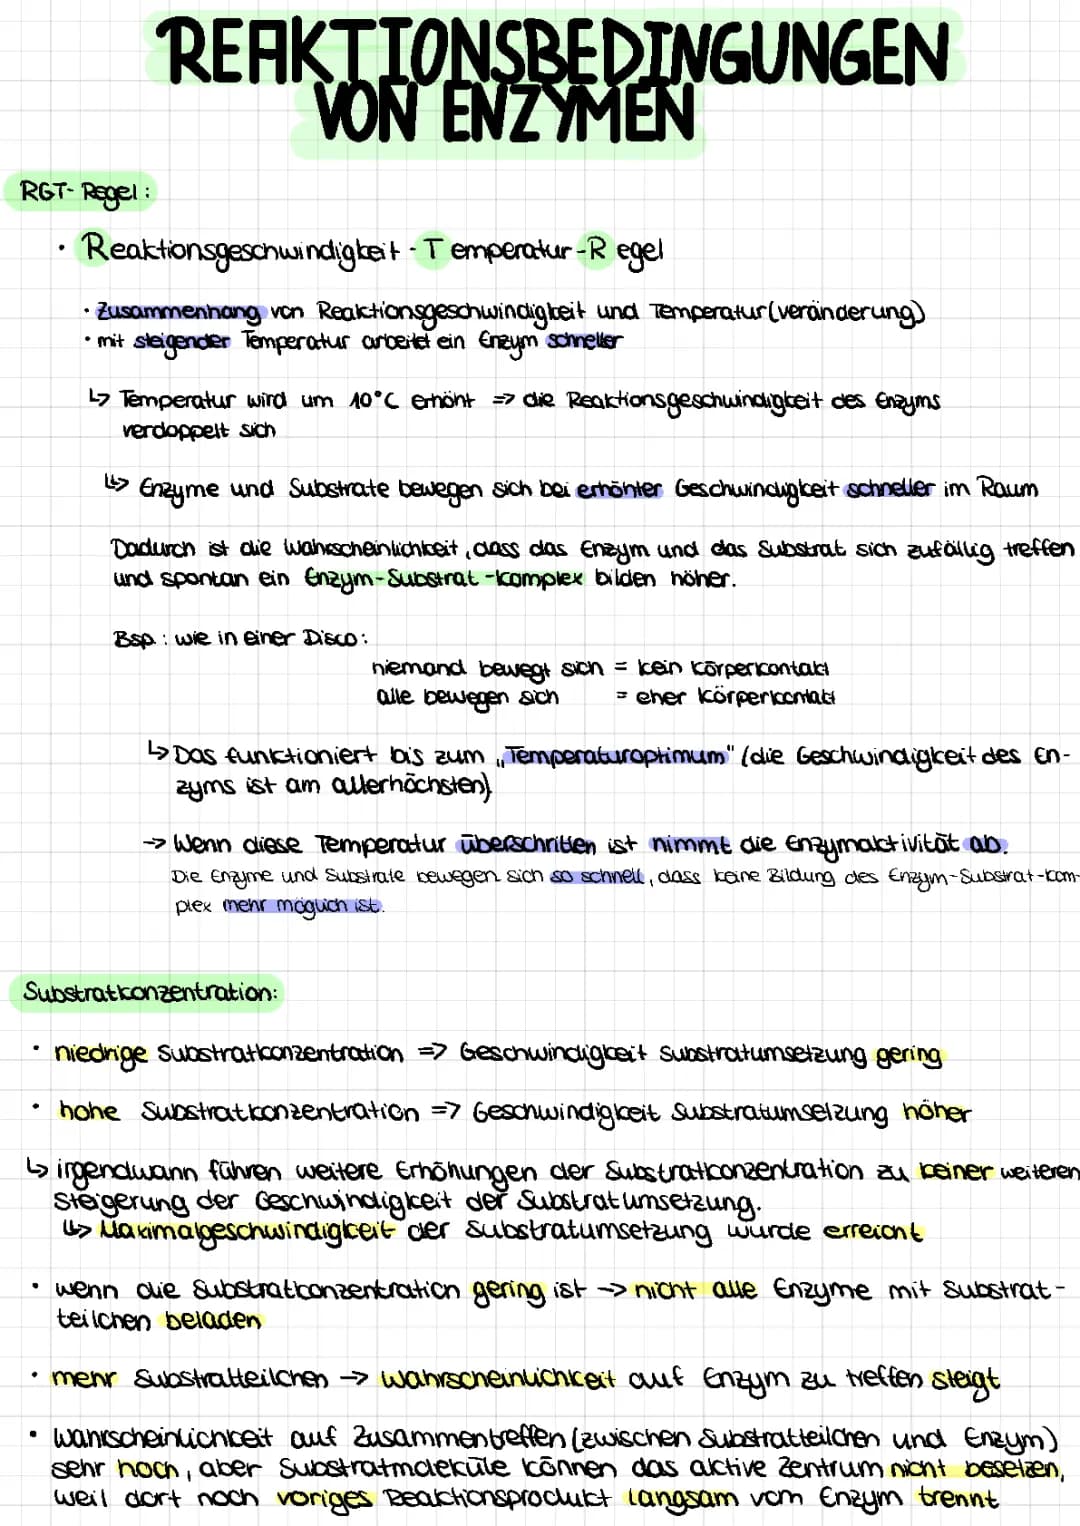 REAKTIONSBEDINGUNGEN
VON ENZYMEN
RGT-Regel:
· Reaktionsgeschwindigkeit-Temperatur-Regel
· Zusammenhang von Reaktionsgeschwindigkeit und Temperatur(veränderung)
· mit steigender Temperatur arbeitet ein Enzym schneller
↳ Temperatur wird um 10°C erhöht => die Reaktionsgeschwindigkeit des Enzyms
verdoppelt sich
↳> Enzyme und Substrate bewegen sich bei erhöhter Geschwindigkeit schneller im Raum
Dadurch ist die Wahrscheinlichkeit, dass das Enzym und das Substrat sich zufällig treffen
und spontan ein Enzym-Substrat-Komplex bilden höher.
Bsp: wie in einer Disco:
niemand bewegt sich = kein Körperkontakt
alle bewegen sich = eher Körperkontakt
↳ Das funktioniert bis zum „Temperaturoptimum" (die Geschwindigkeit des En-
zyms ist am allerhöchsten)
-> Wenn diese Temperatur überschritten ist nimmt die Enzymaktivität ab.
Die Enzyme und Substrate bewegen sich so schnell, dass keine Bildung des Enzym-Substrat-Kom-
plex mehr möglich ist.
Substratkonzentration:
· niedrige Substratkonzentration => Geschwindigkeit Substratumsetzung gering
· hohe Substratkonzentration => Geschwindigkeit Substratumsetzung höher
↳ irgendwann führen weitere Erhöhungen der Substratkonzentration zu keiner weiteren
Steigerung der Geschwindigkeit der Substratumsetzung.
↳> Maximalgeschwindigkeit der Substratumsetzung wurde erreicht
· wenn die Substratkonzentration gering ist -> nicht alle Enzyme mit Substrat-
teilchen beladen
· mehr Substratteilchen -> Wahrscheinlichkeit auf Enzym zu treffen steigt
· Wahrscheinlichkeit auf Zusammentreffen (zwischen Substratteilchen und Enzym)
sehr hoch, aber Substratmoleküle können das aktive Zentrum nicht besetzen,
weil dort noch voriges Reaktionsprodukt langsam vom Enzym trennt